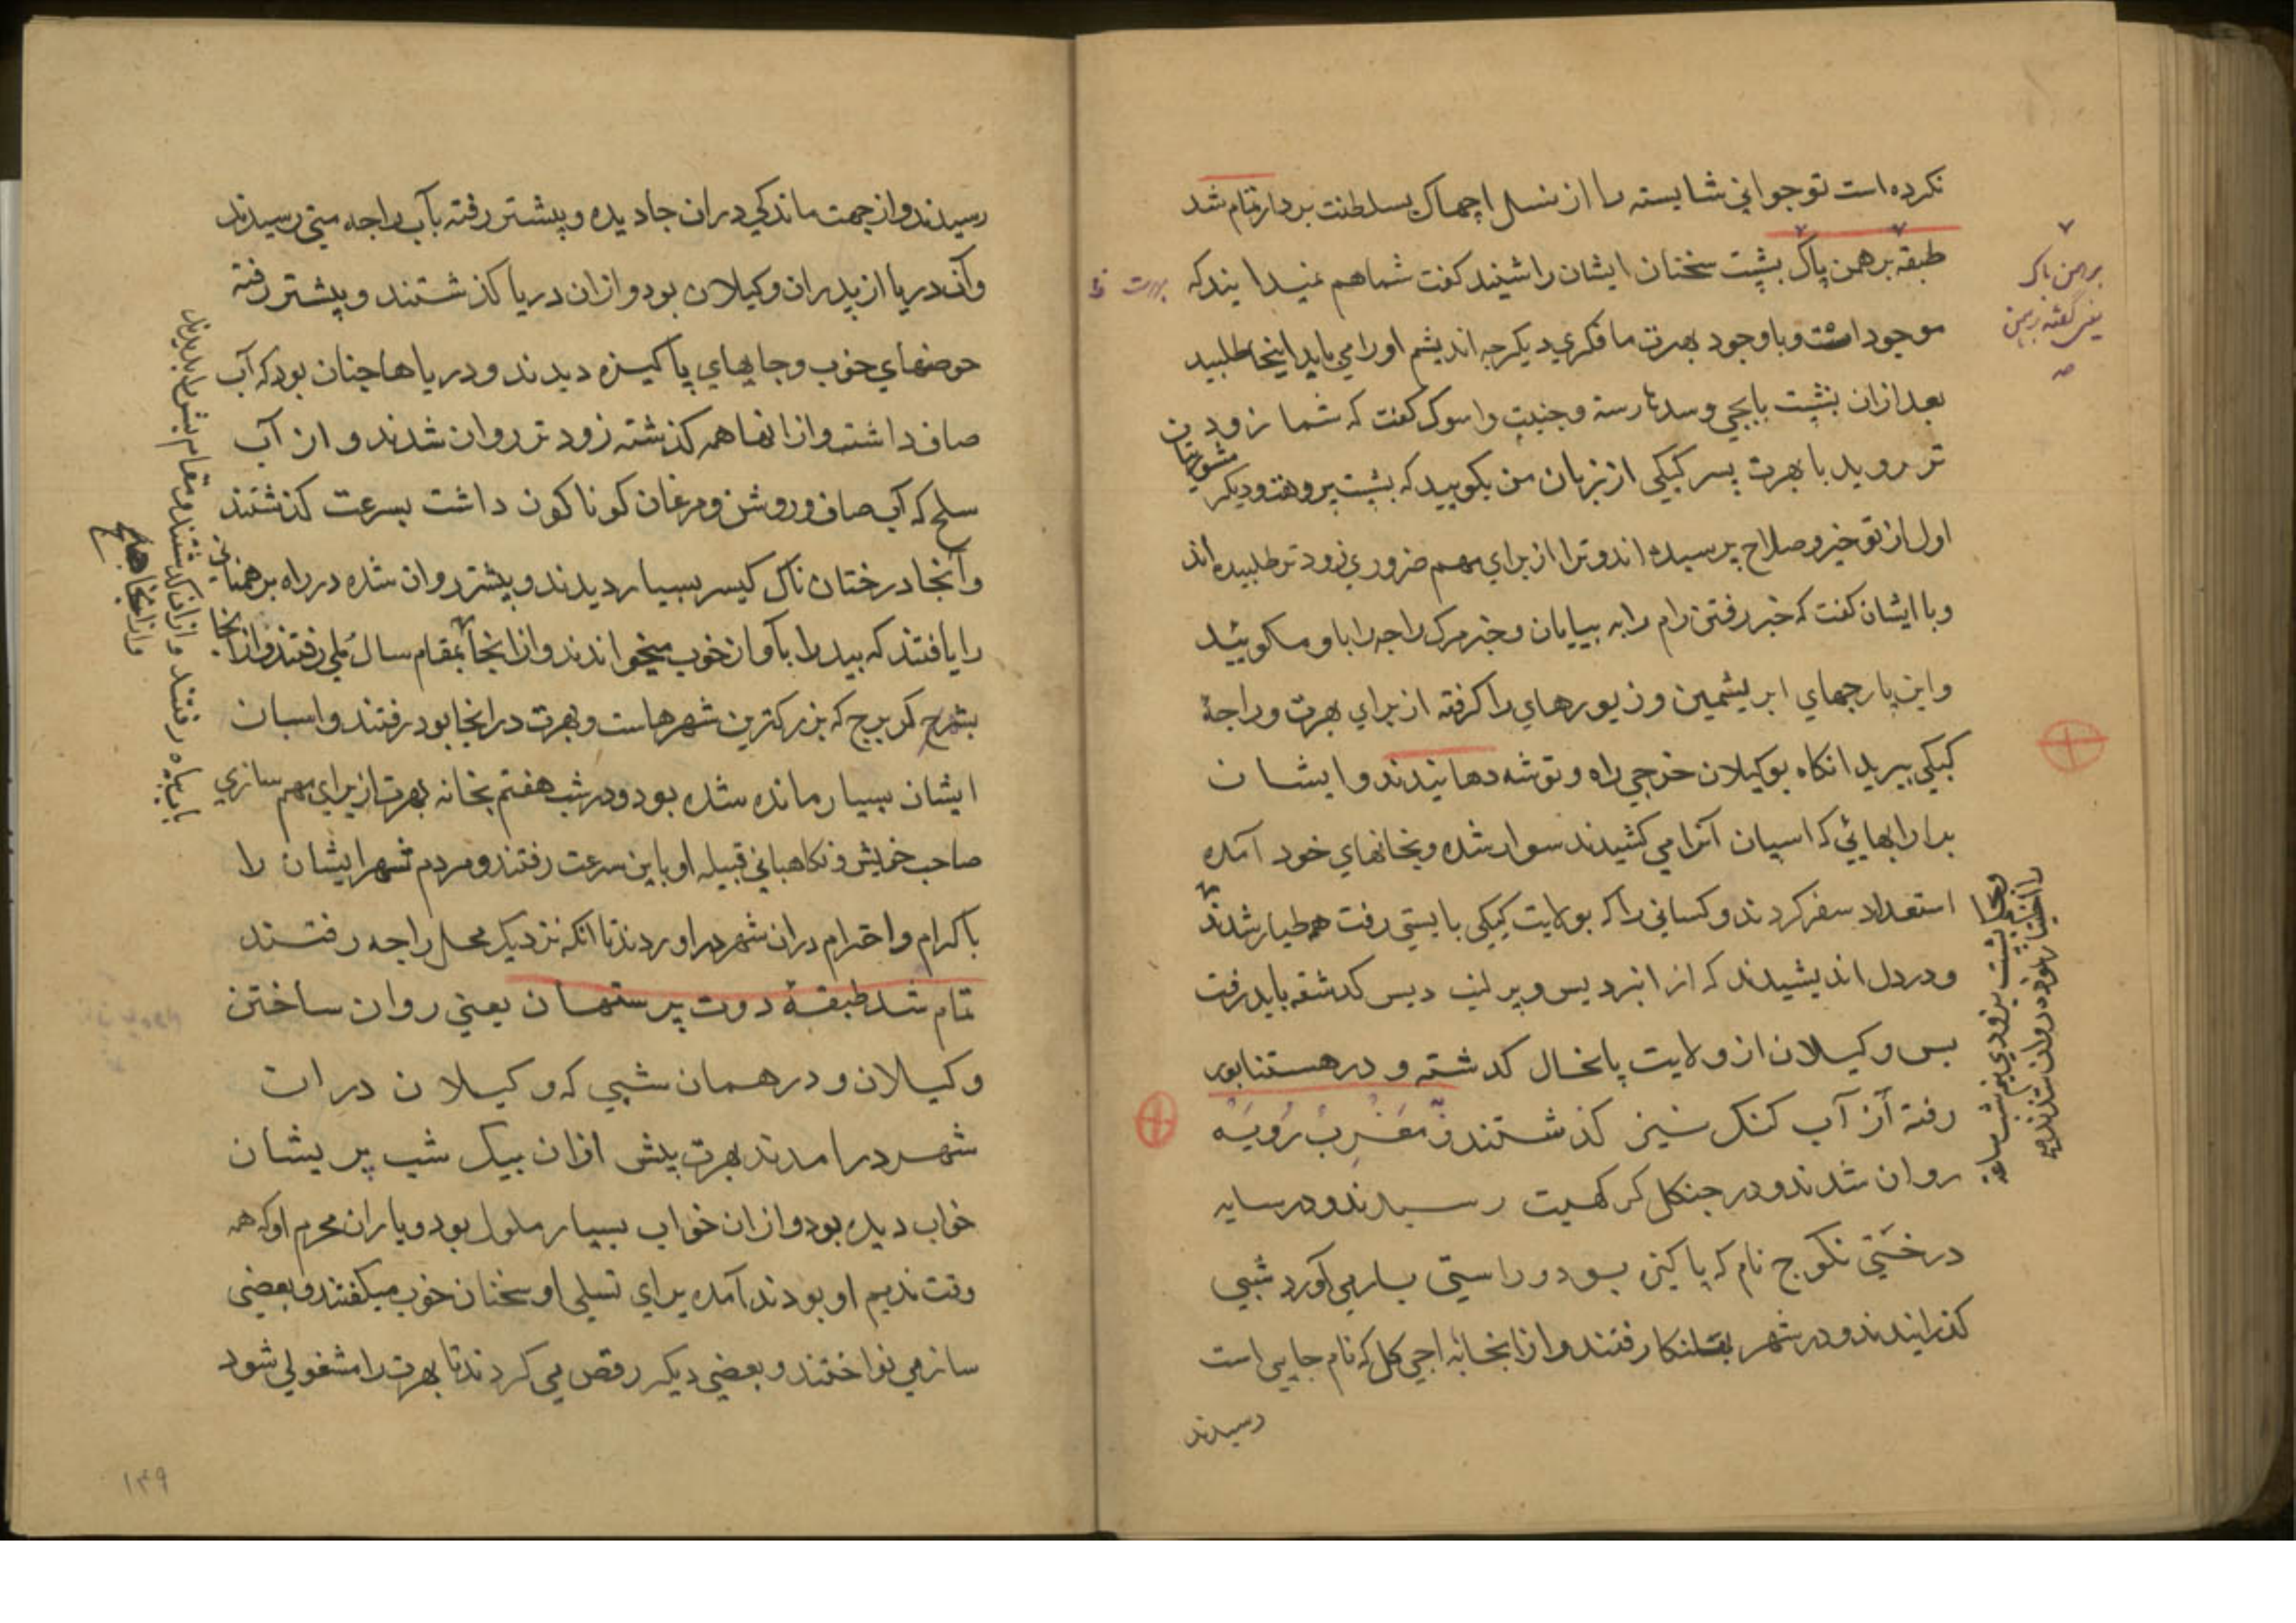 نکرده است تو جوانی شایسته را از نسل اچهاک بسلطنت بردار تمام شد
طبقه برهمن پاک بشپت سخنان ایشان را شنید کفت شما هم نمیدانید که
موجود است و با وجود بهرت ما فکری دیکر چه اندیشم او را می باید اینجا طلبید
بعد ازان بشپت با بجی و سدهارسته و جنیت و اسوک کفت که شما زودین
تر روید با بهرت پسر کیکی از زبان من بکویید که بشپت پروهت و دیکر
اول از تو خیر و صلاح پرسیده اند و ترا از برای مهم ضروری زود تر طلبیده اند
و با ایشان کفت که خبر رفتن رام را به بیابان و خبر مرک راجه را باو مکویید
و این پارچهای ابریشمین و زیورهای را کرفته از برای بهرت و راجهٔ
کیکی ببرید انکاه بوکیلان خرجی راه و توشه دهانیدند و ایشان
برارابهائی که اسپان آنرا می کشیدند سوار شده و بخانهای خود آمده
استعداد سفر کردند و کسانی را که بولایت کیکی بایستی رفت همه طیار شدند
و در دل اندیشیدند که از انبردیس و پرلنب دیس کدشته باید رفت
بس وکیلان از ولایت پانخال کدشته و در هستناپور
رفته از آب کنک نیز کذشتند و مغرب رویه
روان شدند و در جنکل کرکهیت رسیدند و در سایه
درختی نکوج نام که پاکیزه بود و راستی بار می آورد شبی
کذرانیدند و در شهر بقلنکا رفتند و از انجا به اجی کل که نام جایی است
رسیدند
برهمن پاک
رسیدند و از جهت ماندکی دران جا دیده و پیشتر رفته بآب راجه متی رسیدند
و آن دریا از پدران وکیلان بود و ازان دریا کذشتند و پیشتر رفته
حوضهای خوب و جایهای پاکیزه دیدند و دریاها چنان بود که آب
صاف داشت و از انها همه کذشته زود تر روان شدند و از آب
سلح که آب صاف و روشن و مرغان کوناکون داشت بسرعت کذشتند
و آنجا درختان ناک کیسر بسیار دیدند و پیشتر روان شده در راه برهمنان
را یافتند که بید را بآواز خوب میخواندند و از انجا بمقام سال ملی رفتند و از انجا
بشهر کربرج که بزرکترین شهرهاست و بهرت در انجا بود رفتند و اسپان
ایشان بسیار مانده شده بود و در شب هفتم بخانه بهرت از برای مهم سازی
صاحب خویش و نکاهبانی قبیله او باین سرعت رفتند و مردم شهر ایشان را
باکرام و احترام دران شهر در اوردند تا انکه نزدیک محل راجه رفتند
تمام شد طبقهٔ دوت پرستهان یعنی روان ساختن
وکیلان و در همان شبی که وکیلان دران
شهر در امدند بهرت پیش ازان بیک شب پریشان
خواب دیده بود و ازان خواب بسیار ملول بود و یاران محرم او که همه
وقت ندیم او بودند آمده برای تسلی او سخنان خوب میکفتند و بعضی
ساز می نواختند و بعضی دیکر رقص می کردند تا بهرت را مشغولی شود
۱۴۹